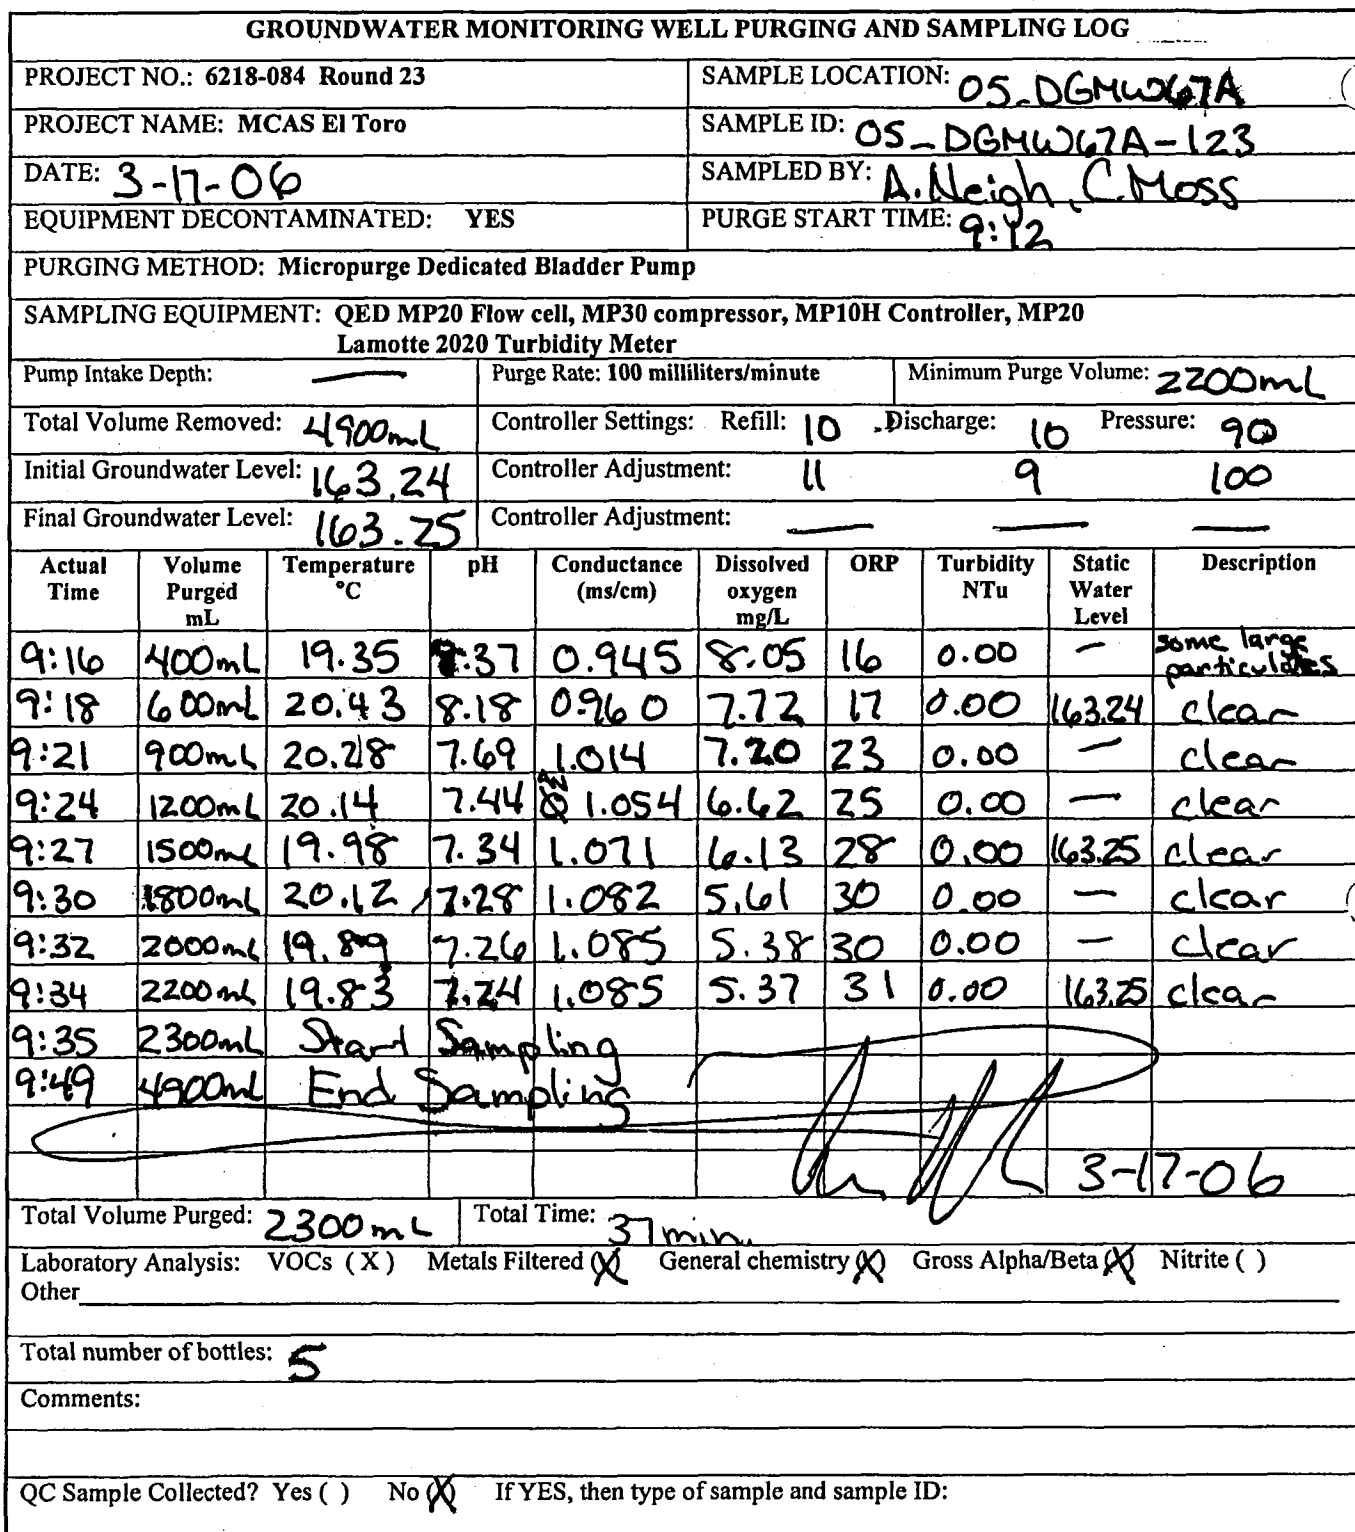 GROUNDWATER MONITORING WELL PURGING AND SAMPLING LOG
PROJECT NO.: 6218-084 Round 23 SAMPLE LOCATION: 05_DGMW67A
PROJECT NAME: MCAS El Toro SAMPLE ID: 05_DGMW67A-123
DATE: 3-17-06 SAMPLED BY: A.Neigh, C.Moss
EQUIPMENT DECONTAMINATED: YES PURGE START TIME: 9:12
PURGING METHOD: Micropurge Dedicated Bladder Pump
SAMPLING EQUIPMENT: QED MP20 Flow cell, MP30 compressor, MP10H Controller, MP20
Lamotte 2020 Turbidity Meter
Pump Intake Depth: — Purge Rate: 100 milliliters/minute Minimum Purge Volume: 2200mL
Total Volume Removed: 4900mL Controller Settings: Refill: 10 Discharge: 10 Pressure: 90
Initial Groundwater Level: 163.24 Controller Adjustment: 11 9 100
Final Groundwater Level: 163.25 Controller Adjustment: — — —
Actual Time Volume Purged mL Temperature °C pH Conductance (ms/cm) Dissolved oxygen mg/L ORP Turbidity NTu Static Water Level Description
9:16 400mL 19.35 :37 0.945 8.05 16 0.00 — some large particulates
9:18 600mL 20.43 8.18 0.960 7.72 17 0.00 163.24 clear
9:21 900mL 20.28 7.69 1.014 7.20 23 0.00 — clear
9:24 1200mL 20.14 7.44 AN 1.054 6.62 25 0.00 — clear
9:27 1500mL 19.98 7.34 1.071 6.13 28 0.00 163.25 clear
9:30 1800mL 20.12 7.28 1.082 5.61 30 0.00 — clear
9:32 2000mL 19.89 7.26 1.085 5.38 30 0.00 — clear
9:34 2200mL 19.83 7.24 1.085 5.37 31 0.00 163.25 clear
9:35 2300mL Start Sampling
9:49 4900mL End Sampling
3-17-06
Total Volume Purged: 2300mL Total Time: 37min.
Laboratory Analysis: VOCs (X) Metals Filtered (X) General chemistry (X) Gross Alpha/Beta (X) Nitrite ( )
Other
Total number of bottles: 5
Comments:
QC Sample Collected? Yes ( ) No (X) If YES, then type of sample and sample ID: